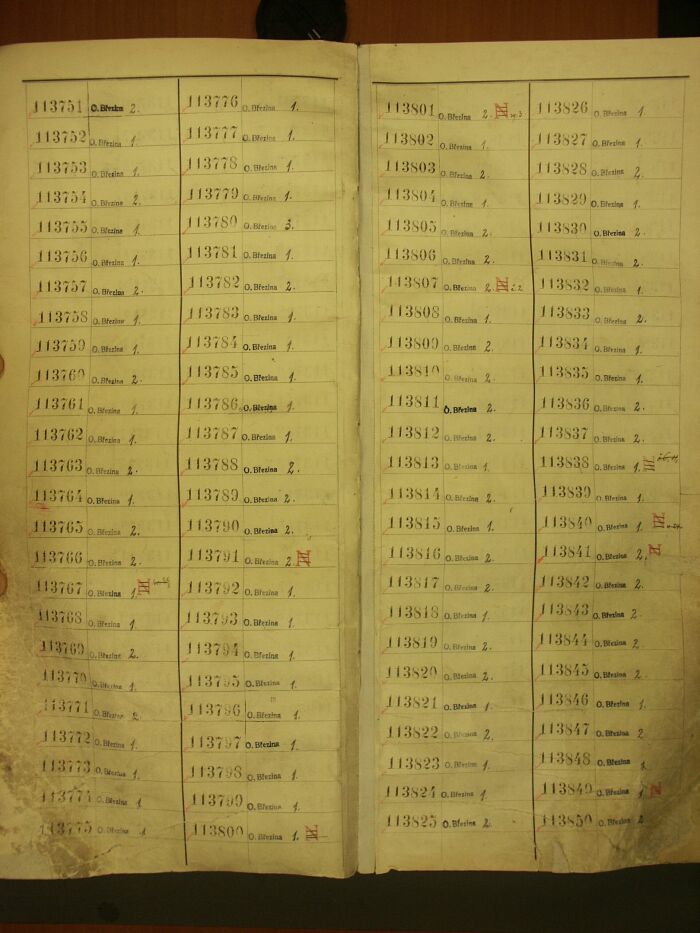 113751 O. Březina 2.
113752 O. Březina 1.
113753 O. Březina 1.
113754 O. Březina 2.
113755 O. Březina 1.
113756 O. Březina 1.
113757 O. Březina 2.
113758 O. Březina 1.
113759 O. Březina 1.
113760 O. Březina 2.
113761 O. Březina 1.
113762 O. Březina 1.
113763 O. Březina 2.
113764 O. Březina 1.
113765 O. Březina 2.
113766 O. Březina 2.
113767 O. Březina 1. III
113768 O. Březina 1.
113769 O. Březina 2.
113770 O. Březina 1.
113771 O. Březina 2.
113772 O. Březina 1.
113773 O. Březina 1.
113774 O. Březina 1
113775 O. Březina 1
113776 O. Březina 1.
113777 O. Březina 1.
113778 O. Březina 1.
113779 O. Březina 1.
113780 O. Březina 3.
113781 O. Březina 1.
113782 O. Březina 2.
113783 O. Březina 1.
113784 O. Březina 1.
113785 O. Březina 1.
113786 O. Březina 1.
113787 O. Březina 1.
113788 O. Březina 2.
113789 O. Březina 2.
113790 O. Březina 2.
113791 O. Březina 2.
113792 O. Březina 1.
113793 O. Březina 1.
113794 O. Březina 1.
113795 O. Březina 1.
113796 O. Březina 1.
113797 O. Březina 1.
113798 O. Březina 1.
113799 O. Březina 1.
113800 O. Březina 1.
113801 O. Březina 2.
113802 O. Březina 1.
113803 O. Březina 2.
113804 O. Březina 1.
113805 O. Březina 2.
113806 O. Březina 2.
113807 O. Březina 2.
113808 O. Březina 1.
113809 O. Březina 2.
113810 O. Březina 2.
113811 O. Březina 2.
113812 O. Březina 2.
113813 O. Březina 1.
113814 O. Březina 2.
113815 O. Březina 1.
113816 O. Březina 2.
113817 O. Březina 2.
113818 O. Březina 1.
113819 O. Březina 2.
113820 O. Březina 2.
113821 O. Březina 1.
113822 O. Březina 2.
113823 O. Březina 1.
113824 O. Březina 1.
113825 O. Březina 2.
113826 O. Březina 1.
113827 O. Březina 1.
113828 O. Březina 2.
113829 O. Březina 1.
113830 O. Březina 2.
113831 O. Březina 2.
113832 O. Březina 1.
113833 O. Březina 2.
113834 O. Březina 1.
113835 O. Březina 1.
113836 O. Březina 2.
113837 O. Březina 2.
113838 O. Březina 1. III
113839 O. Březina 1.
113840 O. Březina 1.
113841 O. Březina 2.
113842 O. Březina 2.
113843 O. Březina 2.
113844 O. Březina 2.
113845 O. Březina 2.
113846 O. Březina 1.
113847 O. Březina 2.
113848 O. Březina 1.
113849 O. Březina 1.
113850 O. Březina 2